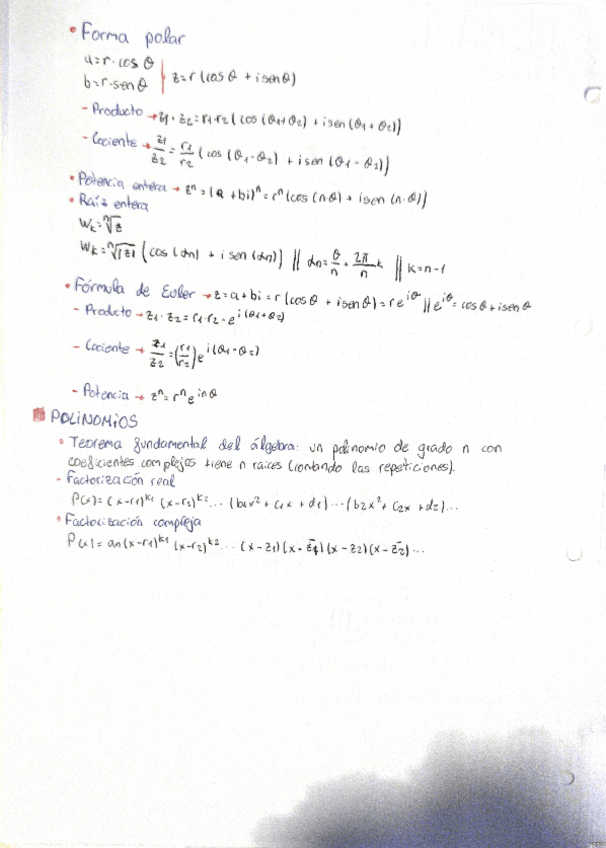 • Forma polar
a=r·cosθ
b=r·senθ | z=r(cosθ + isenθ)
- Producto → z1·z2=r1·r2(cos(θ1+θ2) + isen(θ1+θ2))
- Cociente → z1/z2 = r1/r2 (cos(θ1-θ2) + isen(θ1-θ2))
• Potencia entera → zⁿ=(a+bi)ⁿ=rⁿ(cos(n·θ) + isen(n·θ))
• Raíz entera
Wk=ⁿ√z
Wk=ⁿ√|z| (cos(αn) + i sen(αn)) || αn=θ/n + 2π/n k || k=n-1
• Fórmula de Euler → z=a+bi=r(cosθ + isenθ)=re^iθ || e^iθ=cosθ+isenθ
- Producto → z1·z2=r1·r2·e^i(θ1+θ2)
- Cociente → z1/z2=(r1/r2)e^i(θ1-θ2)
- Potencia → zⁿ=rⁿe^inθ
POLINOMIOS
• Teorema fundamental del álgebra: un polinomio de grado n con
coeficientes complejos tiene n raíces (contando las repeticiones).
- Factorización real
P(x)=(x-r1)^k1 (x-r2)^k2... (b1x²+c1x+d1)...(b2x²+c2x+d2)...
• Factorización compleja
P(x)=an(x-r1)^k1 (x-r2)^k2... (x-z1)(x-z̄1)(x-z2)(x-z̄2)...